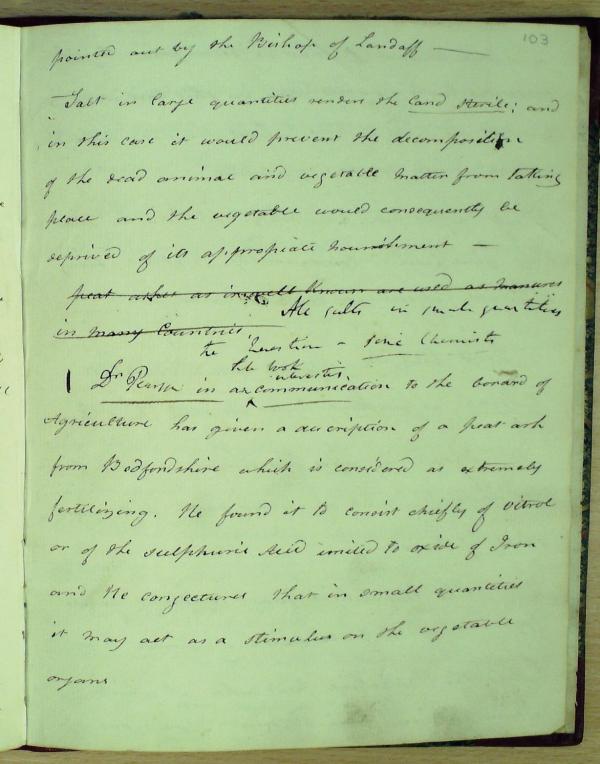 103
pointed out by the Bishop of Landaff —
Salt in large quantities renders the land sterile; and
in this case it would prevent the decomposition
of the dead animal and vegetable matter from taking
place and the vegetable would consequently be
deprived of its appropiate nourishment —
peat ashes as is well known are used as manures
in many Countries
salts in small quantities
the Question - some Chemists
interesting
Dr Pearson in a communication to the borard of
Agriculture has given a description of a peat ash
from Bedfordshire which is considered as extremely
fertilizing. He found it to consist chiefly of vitrol
or of the sulphuric Acid united to oxide of Iron
and He conjectures that in small quantities
it may act as a stimulus on the vegetable
organs